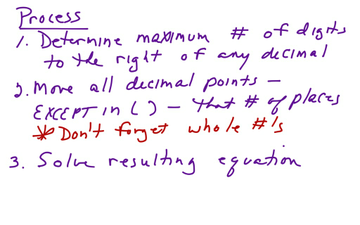 Process
1. Determine maximum # of digits
to the right of any decimal
2. Move all decimal points –
EXCEPT in ( ) – that # of places
* Don't forget whole #'s
3. Solve resulting equation